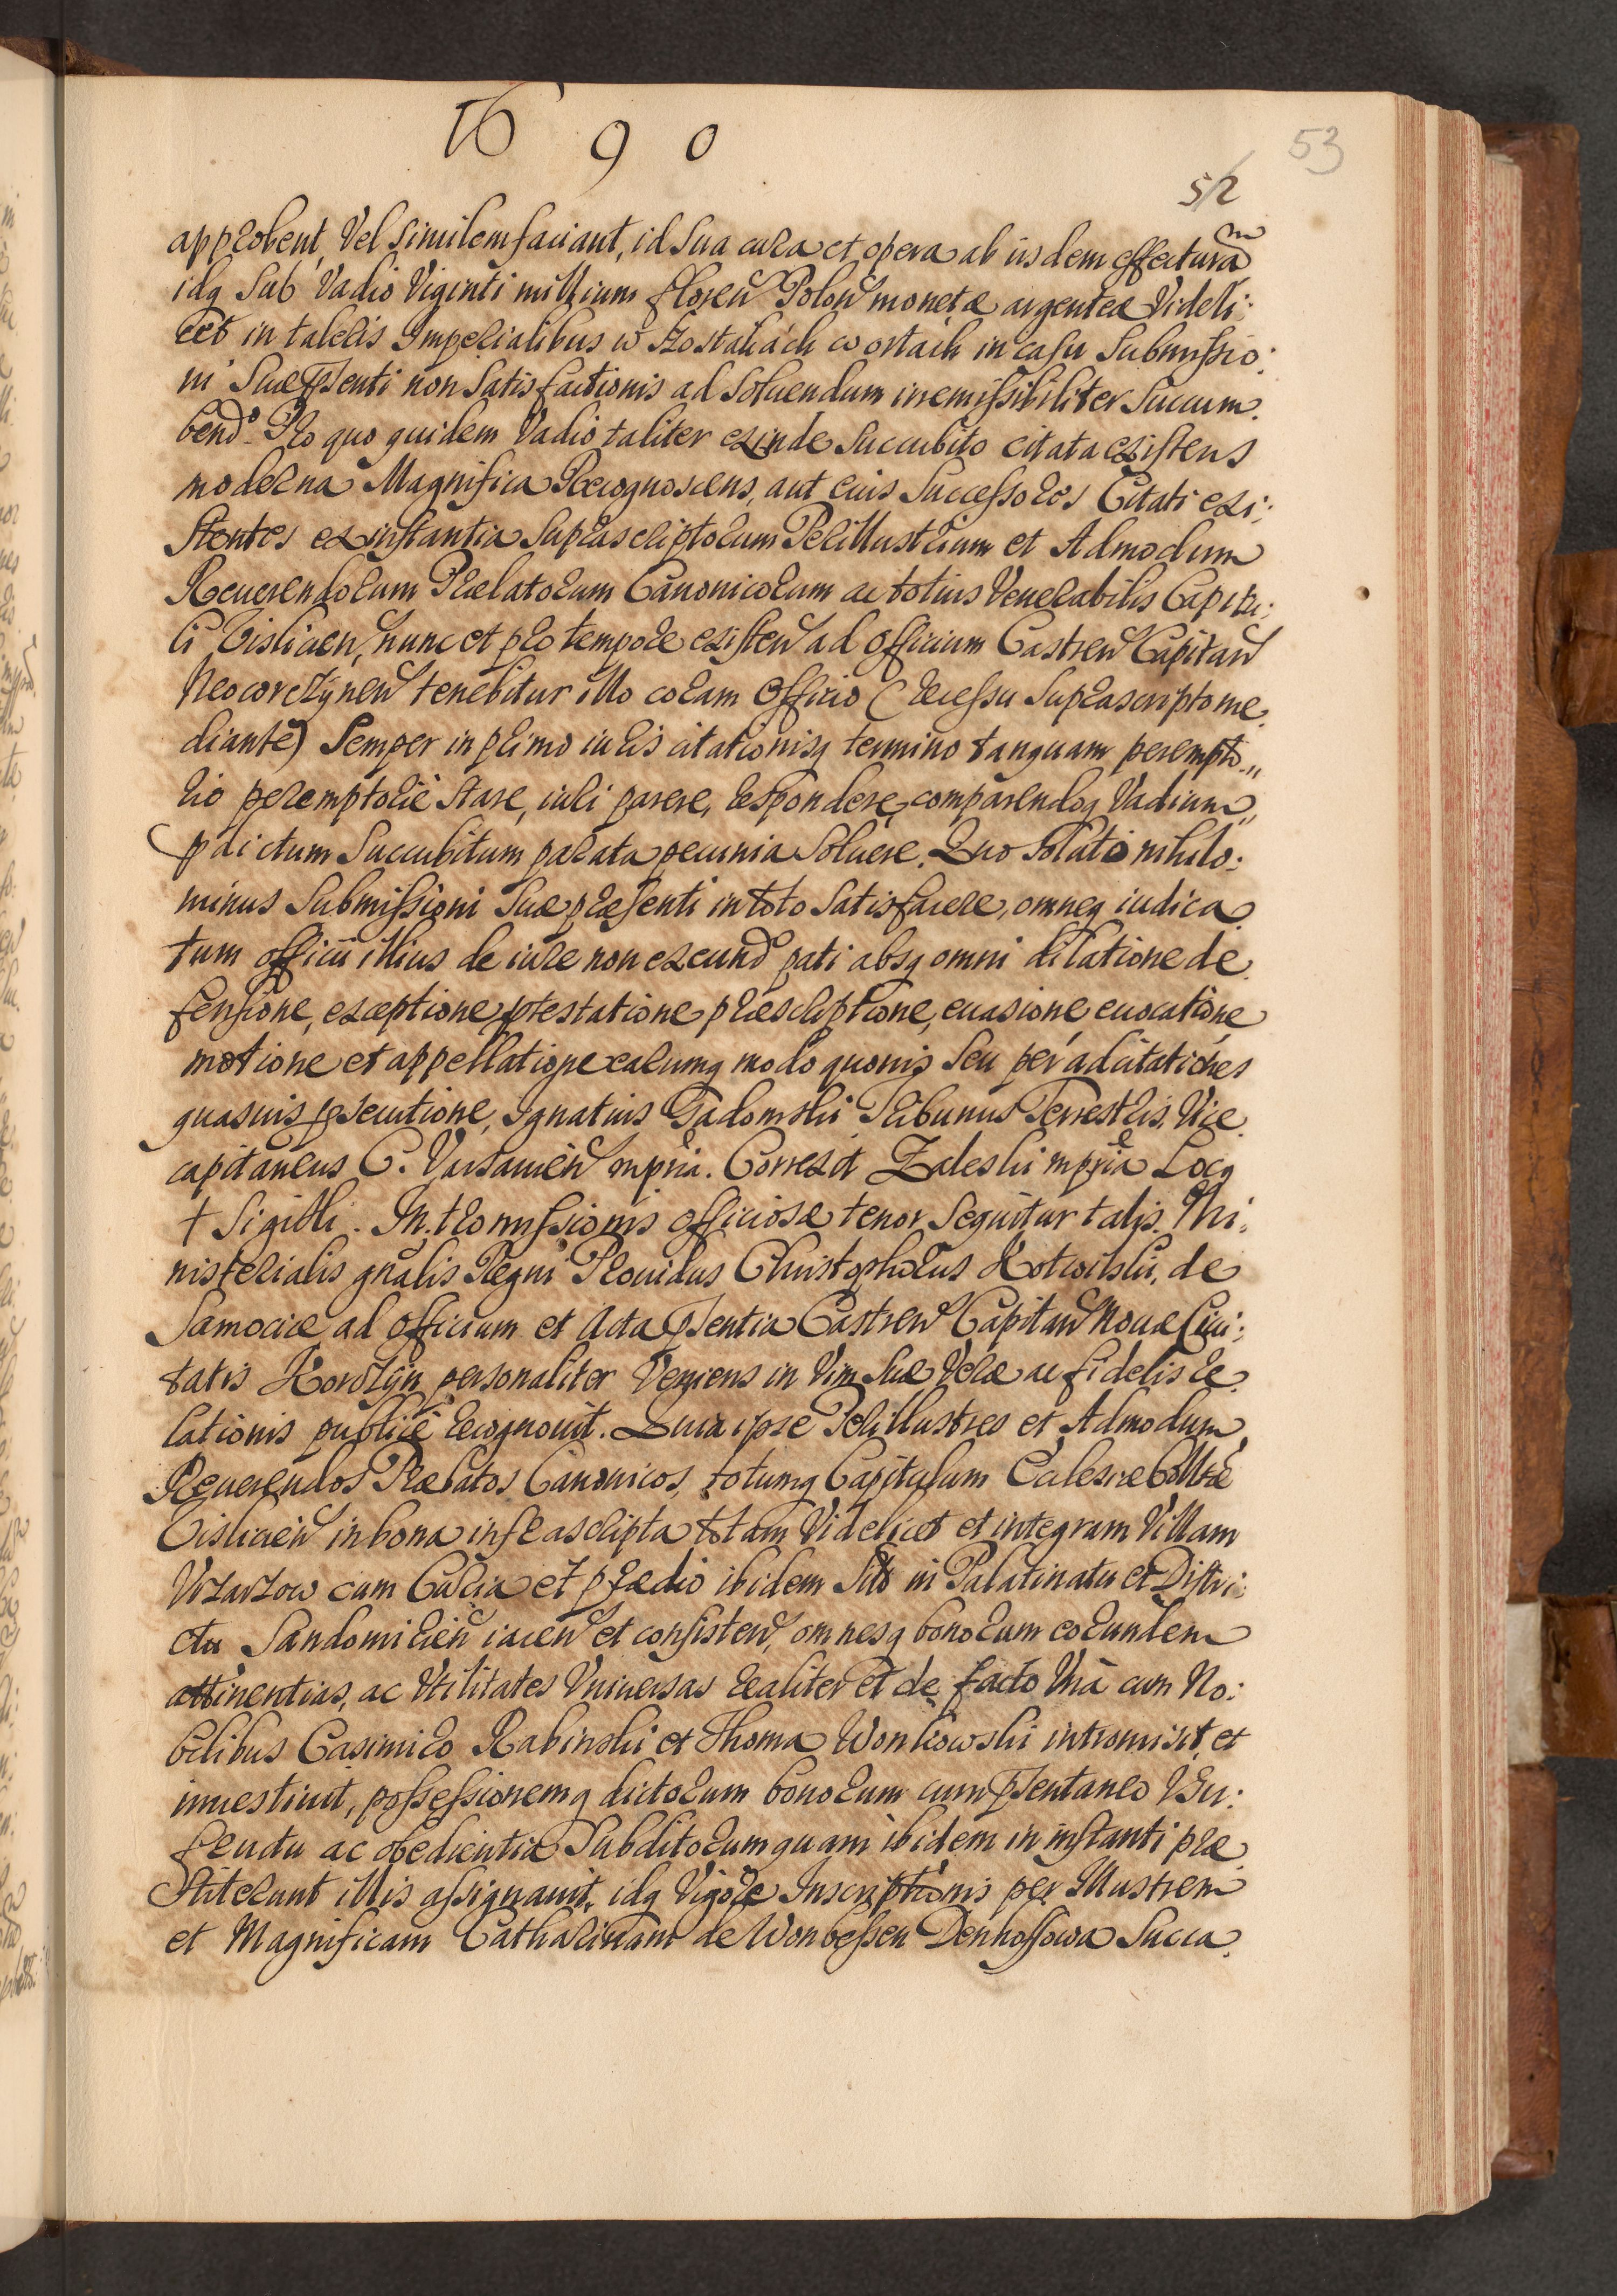 1690
53
52
approbent, Vel Similem faciant, id Sua cura et opera ab iisdem effectura
idq Sub Vadio Viginti millium floren Polon monetæ argenteæ Videli:
cet in taleris Imperialibus w Kostaliach w ortach in casu Submissio:
ni Suæ pnsenti non Satisfactionis ad Soluendum irremissibiliter Succum:
bendo. Pro quo quidem Vadio taliter exinde Succubito citata existens
moderna Magnifica Recognoscens, aut eius Successores Citati exi:
stentes ex instantia Suprascriptorum Perillustrium et Admodum
Reuerendorum Prælatorum Canonicorum ac totius Venerabilis Capitu:
li Vislicien, nunc et pro tempore existen ad Officium Castren Capitan
Neocorczynen tenebitur illo coram Officio (recessu Suprascripto me:
diante) Semper in primo iuris citationisq termino tanquam perempto„
rio peremptorie Stare, iuri parere, respondere, comparendoq Vadium„
pdictum Succubitum parata pecunia Soluere. Quo Soluto nihilo:
minus Submissioni Suæ præsenti in toto Satisfacere, omneq iudica
tum officii illius de iure non exeund pati absq omni dilatione de
fensione, exceptione, ptestatione præscriptione, euasione euocatione
motione et appellatione earumq modo quouis Seu per adcitationes
quasuis psecutione, Ignatius Gadomski Tribunus Terrestris, Vice
capitaneus C. Varsauien mpria. Correxit Zaleski mpria Locq
† Sigilli. Intromissionis officiosæ tenor Sequitur talis. Mi:
nisterialis gnalis Regni Prouidus Christophorus Kotwitski, de
Samocice ad Officium et Acta pnsentia Castren Capitan Nouæ Ciui:
tatis Korczyn personaliter Veniens in Vim Suæ Veræ ac fidelis re
lationis publice recognouit. Quia ipse Perillustres et Admodum
Reuerendos Prælatos Canonicos, totumq Capitulum Ecclesiæ Collttæ
Vislicien in bona infrascripta totam Videlicet et integram Villam
cum Curia et prædio ibidem Sito in Palatinatu et Distri:
ctu Sandomirien iacen et consisten, omnesq bonorum eorundem
attinentias, ac Vtilitates Vniuersas realiter et de facto Vna cum No:
bilibus Casimiro Rabinski et Thoma Wonkowski intromisit, et
inuestiuit, possessionemq dictorum bonorum cum pnsentaneo Vsu:
fructu ac obedientia Subditorum quam ibidem in instanti præ
Stiterunt illis assignauit, idq Vigore Inscriptionis per Illustrem
et Magnificam Catharinam de Wonbessen Denhoffowa Succa